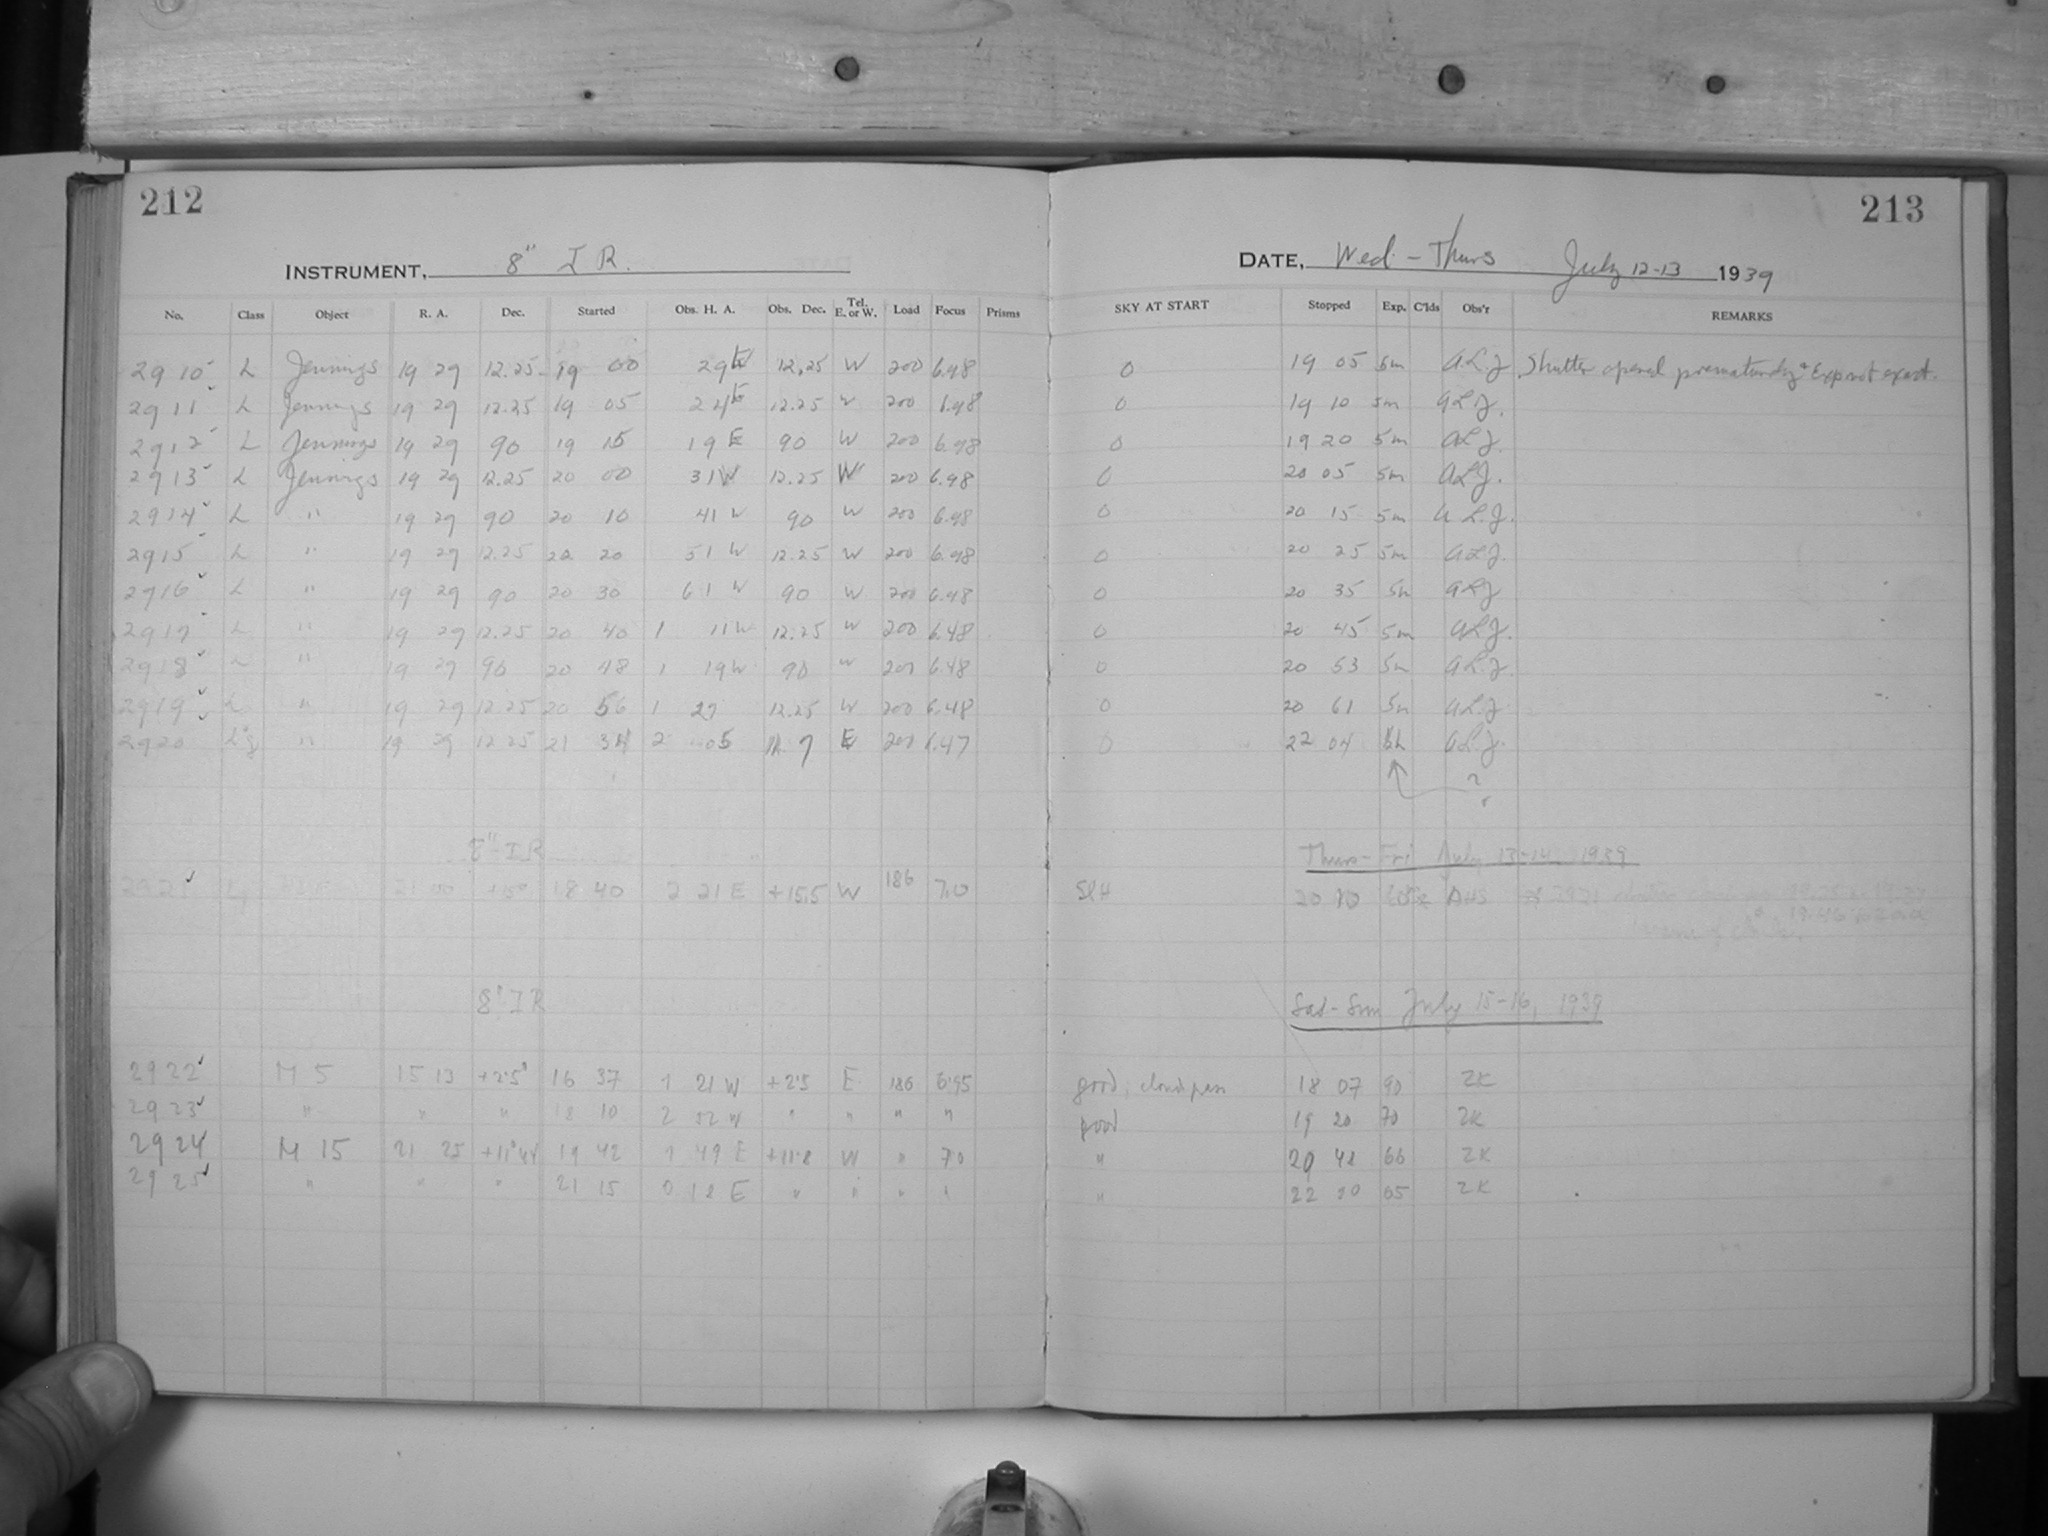 212
213
INSTRUMENT, 8" I R.
DATE, Wed - Thurs July 12-13 1939
No. Class Object R. A. Dec. Started Obs. H. A. Obs. Dec. Tel. E. or W. Load Focus Prisms SKY AT START Stopped Exp. C'lds Obs'r REMARKS
2910 L Jennings 19 29 12.25 19 00 29 12.25 W 200 6.98 0 19 05 5m A.L.J. Shutter opened prematurely & Exp not exact.
2911 L Jennings 19 29 12.25 19 05 24E 12.25 W 200 6.98 0 19 10 5m A.L.J.
2912 L Jennings 19 29 90 19 15 19 E 90 W 200 6.98 0 19 20 5m A.L.J.
2913 L Jennings 19 29 12.25 20 00 31W 12.25 W 200 6.98 0 20 05 5m A.L.J.
2914 L " 19 29 90 20 10 41 W 90 W 200 6.98 0 20 15 5m A.L.J.
2915 L " 19 29 12.25 20 20 51 W 12.25 W 200 6.98 0 20 25 5m A.L.J.
2916 L " 19 29 90 20 30 61 W 90 W 200 6.98 0 20 35 5m A.L.J
2917 L " 19 29 12.25 20 40 1 11W 12.25 W 200 6.48 0 20 45 5m A.L.J.
2918 L " 19 29 90 20 48 1 19W 90 W 200 6.48 0 20 53 5m A.L.J.
2919 L " 19 29 12.25 20 56 1 27 12.25 W 200 6.48 0 20 61 5m A.L.J.
2920 " 19 29 12.25 21 34 2 05 7 E 200 6.47 0 22 04 A.L.J.
?
8" I R Thurs-Fri July 13-14, 1939
2921 18 40 2 21 E +15.5 W 186 7.0 20 AHS
8" I R Sat-Sun July 15-16, 1939
2922 M 5 15 13 +2.5° 16 37 1 21 W +2.5 E 186 6.95 good, clouds pass 18 07 90 ZK
2923 " " " 18 10 2 52 W " " " " good 19 20 70 ZK
2924 M 15 21 25 +11°44 19 42 1 49 E +11.8 W " 7.0 " 20 48 66 ZK
2925 " " " 21 15 0 18 E " " " " " 22 20 65 ZK